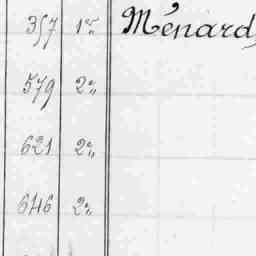 357 1er Ménard,
579 2e
621 2e
646 2e